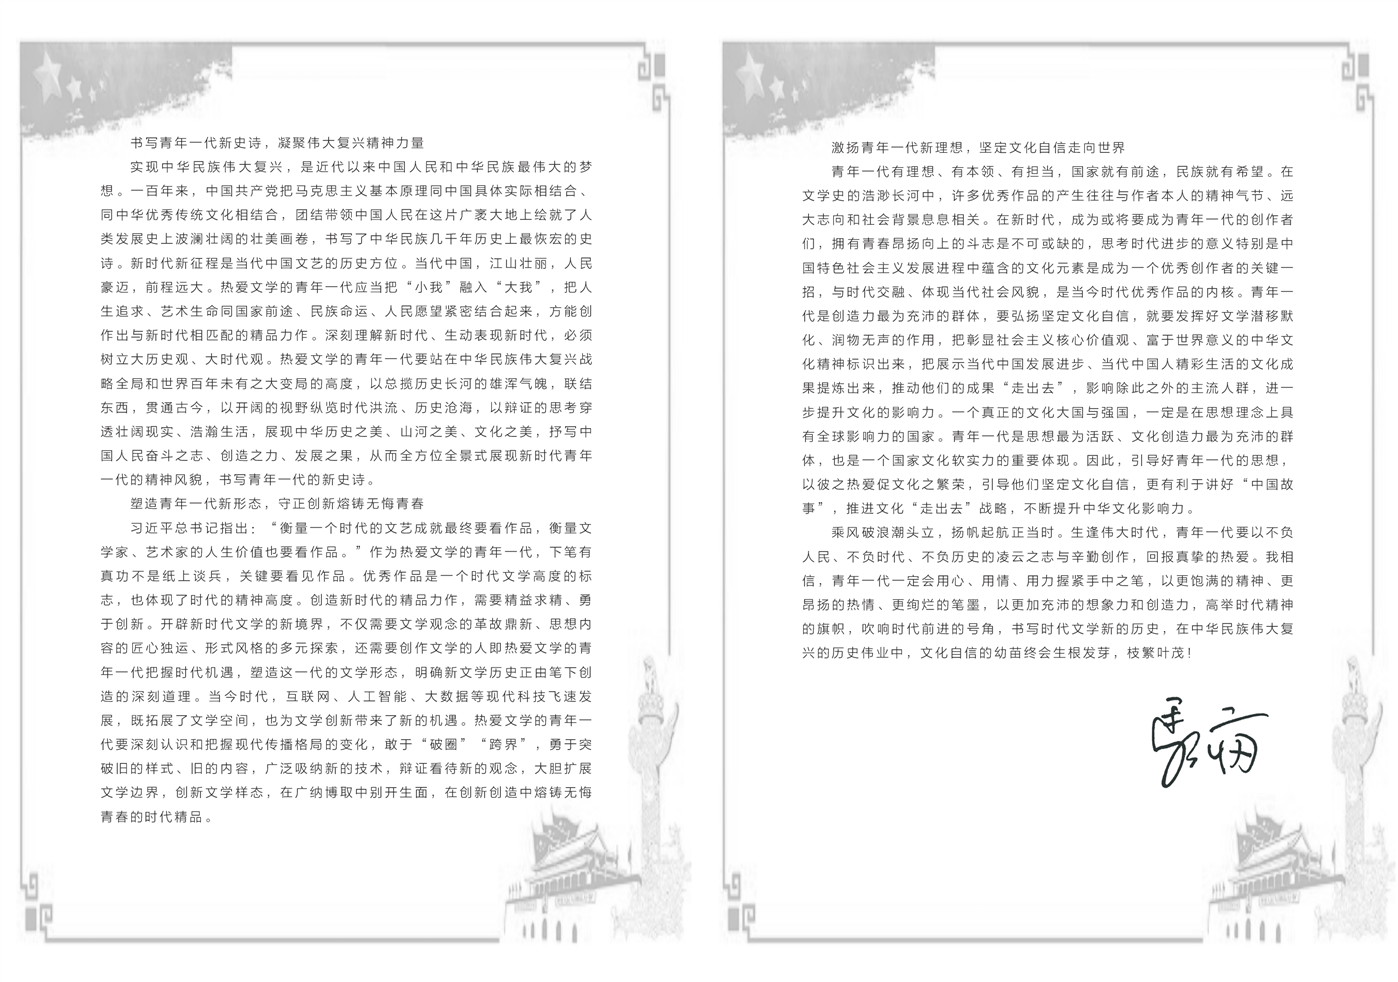 书写青年一代新史诗，凝聚伟大复兴精神力量
实现中华民族伟大复兴，是近代以来中国人民和中华民族最伟大的梦
想。一百年来，中国共产党把马克思主义基本原理同中国具体实际相结合、
同中华优秀传统文化相结合，团结带领中国人民在这片广袤大地上绘就了人
类发展史上波澜壮阔的壮美画卷，书写了中华民族几千年历史上最恢宏的史
诗。新时代新征程是当代中国文艺的历史方位。当代中国，江山壮丽，人民
豪迈，前程远大。热爱文学的青年一代应当把“小我”融入“大我”，把人
生追求、艺术生命同国家前途、民族命运、人民愿望紧密结合起来，方能创
作出与新时代相匹配的精品力作。深刻理解新时代、生动表现新时代，必须
树立大历史观、大时代观。热爱文学的青年一代要站在中华民族伟大复兴战
略全局和世界百年未有之大变局的高度，以总揽历史长河的雄浑气魄，联结
东西，贯通古今，以开阔的视野纵览时代洪流、历史沧海，以辩证的思考穿
透壮阔现实、浩瀚生活，展现中华历史之美、山河之美、文化之美，抒写中
国人民奋斗之志、创造之力、发展之果，从而全方位全景式展现新时代青年
一代的精神风貌，书写青年一代的新史诗。
塑造青年一代新形态，守正创新熔铸无悔青春
习近平总书记指出：“衡量一个时代的文艺成就最终要看作品，衡量文
学家、艺术家的人生价值也要看作品。”作为热爱文学的青年一代，下笔有
真功不是纸上谈兵，关键要看见作品。优秀作品是一个时代文学高度的标
志，也体现了时代的精神高度。创造新时代的精品力作，需要精益求精、勇
于创新。开辟新时代文学的新境界，不仅需要文学观念的革故鼎新、思想内
容的匠心独运、形式风格的多元探索，还需要创作文学的人即热爱文学的青
年一代把握时代机遇，塑造这一代的文学形态，明确新文学历史正由笔下创
造的深刻道理。当今时代，互联网、人工智能、大数据等现代科技飞速发
展，既拓展了文学空间，也为文学创新带来了新的机遇。热爱文学的青年一
代要深刻认识和把握现代传播格局的变化，敢于“破圈”“跨界”，勇于突
破旧的样式、旧的内容，广泛吸纳新的技术，辩证看待新的观念，大胆扩展
文学边界，创新文学样态，在广纳博取中别开生面，在创新创造中熔铸无悔
青春的时代精品。
激扬青年一代新理想，坚定文化自信走向世界
青年一代有理想、有本领、有担当，国家就有前途，民族就有希望。在
文学史的浩渺长河中，许多优秀作品的产生往往与作者本人的精神气节、远
大志向和社会背景息息相关。在新时代，成为或将要成为青年一代的创作者
们，拥有青春昂扬向上的斗志是不可或缺的，思考时代进步的意义特别是中
国特色社会主义发展进程中蕴含的文化元素是成为一个优秀创作者的关键一
招，与时代交融、体现当代社会风貌，是当今时代优秀作品的内核。青年一
代是创造力最为充沛的群体，要弘扬坚定文化自信，就要发挥好文学潜移默
化、润物无声的作用，把彰显社会主义核心价值观、富于世界意义的中华文
化精神标识出来，把展示当代中国发展进步、当代中国人精彩生活的文化成
果提炼出来，推动他们的成果“走出去”，影响除此之外的主流人群，进一
步提升文化的影响力。一个真正的文化大国与强国，一定是在思想理念上具
有全球影响力的国家。青年一代是思想最为活跃、文化创造力最为充沛的群
体，也是一个国家文化软实力的重要体现。因此，引导好青年一代的思想，
以彼之热爱促文化之繁荣，引导他们坚定文化自信，更有利于讲好“中国故
事”，推进文化“走出去”战略，不断提升中华文化影响力。
乘风破浪潮头立，扬帆起航正当时。生逢伟大时代，青年一代要以不负
人民、不负时代、不负历史的凌云之志与辛勤创作，回报真挚的热爱。我相
信，青年一代一定会用心、用情、用力握紧手中之笔，以更饱满的精神、更
昂扬的热情、更绚烂的笔墨，以更加充沛的想象力和创造力，高举时代精神
的旗帜，吹响时代前进的号角，书写时代文学新的历史，在中华民族伟大复
兴的历史伟业中，文化自信的幼苗终会生根发芽，枝繁叶茂！